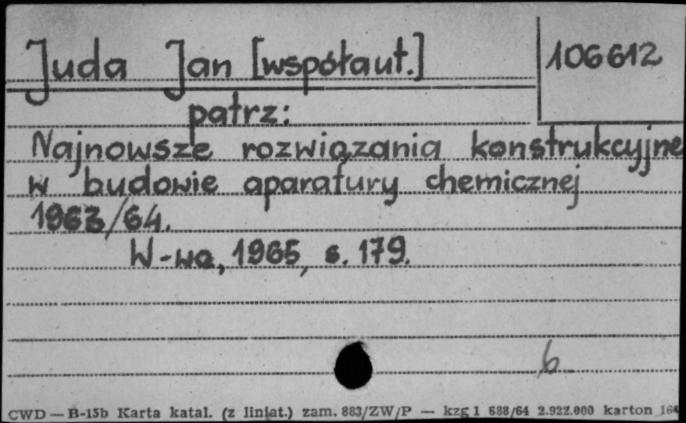 Juda Jan [współaut.]
106612
patrz:
Najnowsze rozwiązania konstrukcyjne
w budowie aparatury chemicznej
1963/64.
W-wa, 1965, s. 179.
6
CWD — B-15b Karta katal. (z liniat.) zam. 883/ZW/P — kzg 1 688/64 2.922.000 karton